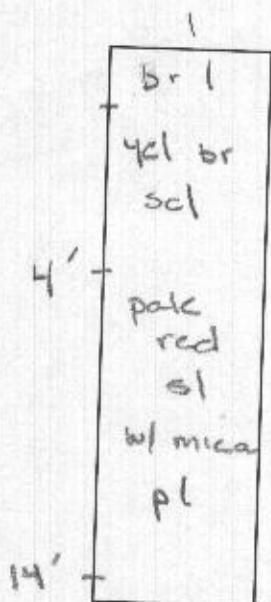 1
br l
yel br
scl
4'
pale
red
sl
w/ mica
pl
14'